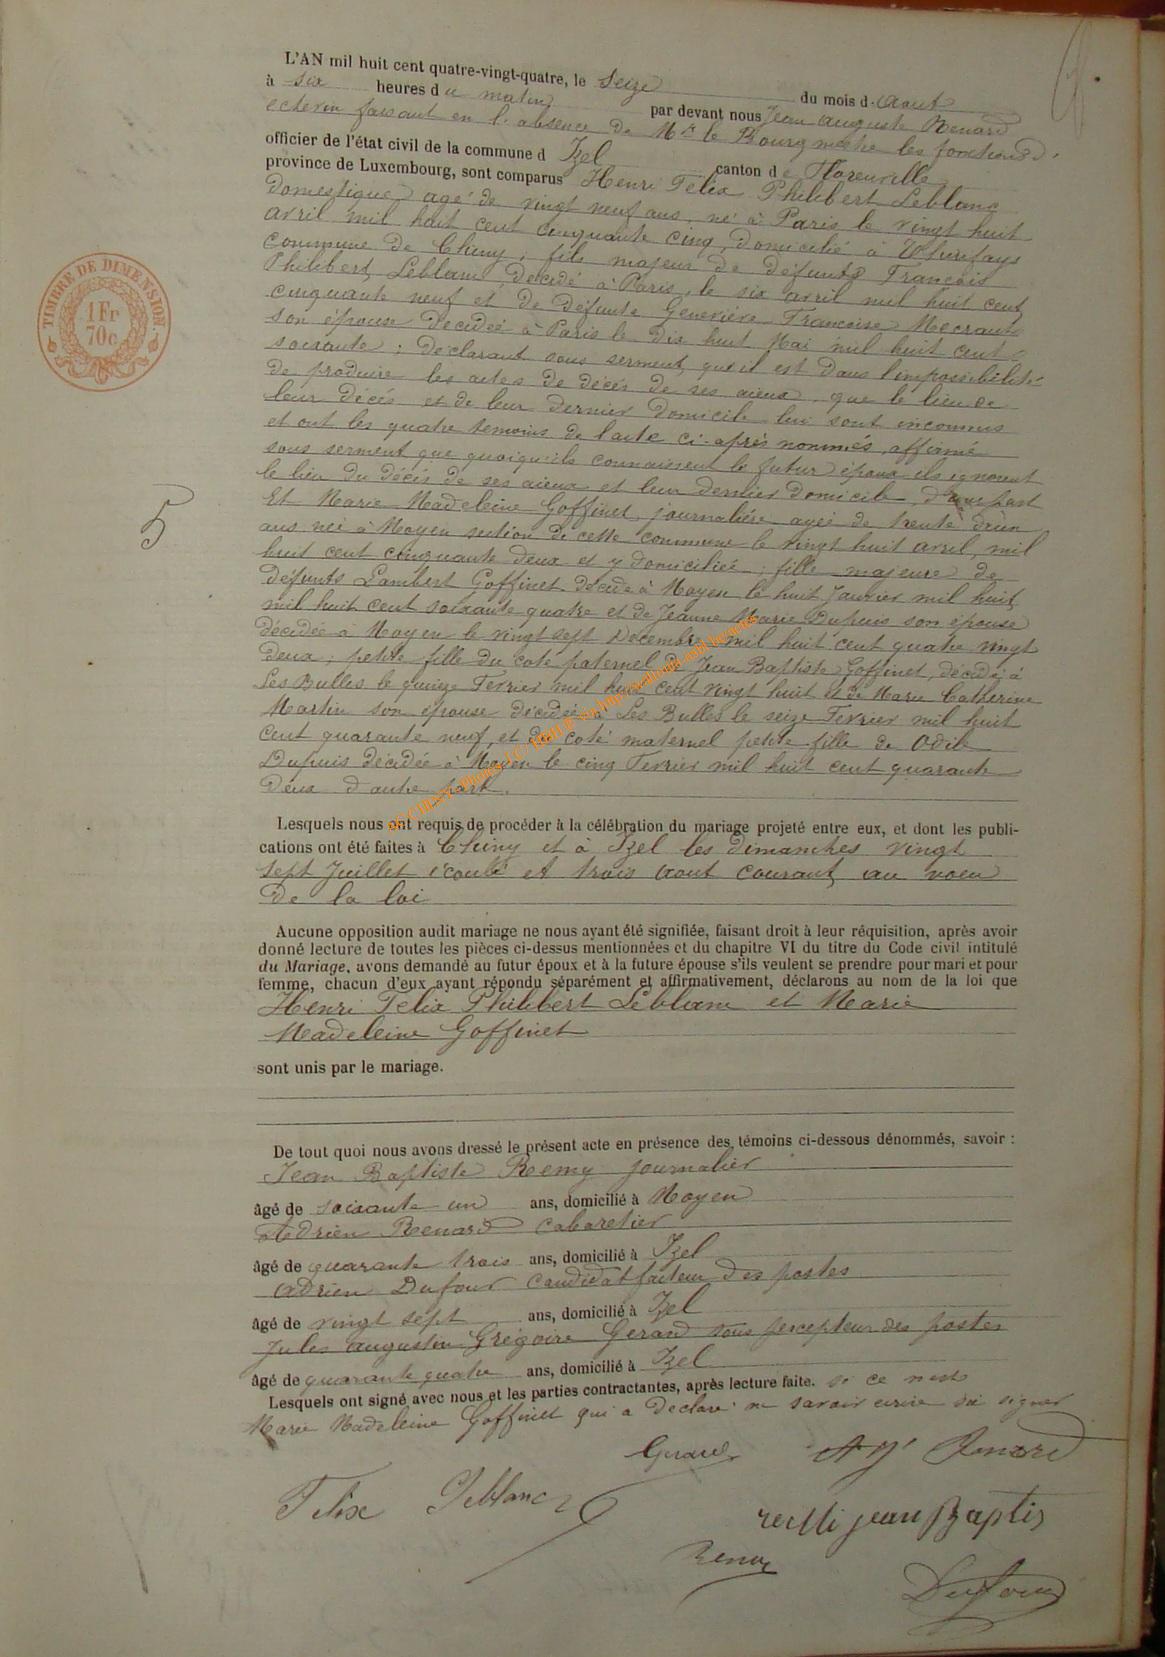 L'AN mil huit cent quatre-vingt-quatre, le Seize du mois d'aout
à six heures du matin par devant nous Jean Auguste Renard
echevin faisant en l'absence de Mr le Bourgmestre les fonctions d'
officier de l'état civil de la commune d Izel canton de Florenville
province de Luxembourg, sont comparus Henri Felix Philibert Leblanc
domestique agé de vingt neuf ans, né à Paris le vingt huit
avril mil huit cent cinquante cinq, domicilié à
commune de Chiny, fils majeur de défunts François
Philibert Leblanc, décédé à Paris, le six avril mil huit cent
cinquante neuf et de défunte Geneviève Françoise
son épouse décédée à Paris le dix huit Mai mil huit cent
soixante ; déclarant sous serment, qu'il est dans l'impossibilité
de produire les actes de décés de ses aieux, que le lieu de
leur décés et de leur dernier domicile lui sont inconnus
et ont les quatre temoins de l'acte ci-après nommés, affirmé
sous serment que quoiqu'ils connaissent le futur époux ils ignorent
le lieu du décés de ses aieux et leur dernier domicile, d'une part
Et Marie Madeleine Goffinet, journalière agée de trente deux
ans née à Moyen section de cette commune le vingt huit avril, mil
huit cent cinquante deux et y domiciliée ; fille majeure de
défunts Lambert Goffinet décédé à Moyen le huit Janvier mil huit
mil huit cent soixante quatre et de Jeanne Marie Dupuis son épouse
décédée à Moyen le vingt sept Decembre mil huit cent quatre vingt
deux ; petite fille du coté paternel de Jean Baptiste Goffinet, décédé à
Les Bulles le quinze Fevrier mil huit cent vingt huit et de Marie Catherine
Martin son épouse décédée à Les Bulles le seize Fevrier mil huit
cent quarante neuf, et du coté maternel petite-fille de Odile
Dupuis décédée à Moyen le cinq Fevrier mil huit cent quarante
deux d'autre part.
Lesquels nous ont requis de procéder à la célébration du mariage projeté entre eux, et dont les publi-
cations ont été faites à Chiny et à Izel les dimanches vingt
sept Juillet écoulé et trois aout courant, au voeu
de la loi
Aucune opposition audit mariage ne nous ayant été signifiée, faisant droit à leur réquisition, après avoir
donné lecture de toutes les pièces ci-dessus mentionnées et du chapitre VI du titre du Code civil intitulé
du Mariage, avons demandé au futur époux et à la future épouse s'ils veulent se prendre pour mari et pour
femme, chacun d'eux ayant répondu séparément et affirmativement, déclarons au nom de la loi que
Henri Felix Philibert Leblanc et Marie
Madeleine Goffinet
sont unis par le mariage.
De tout quoi nous avons dressé le présent acte en présence des témoins ci-dessous dénommés, savoir :
Jean Baptiste Remy journalier
âgé de soixante un ans, domicilié à Moyen
Adrien Renard cabaretier
âgé de quarante trois ans, domicilié à Izel
Adrien Dufour candidat facteur des postes
âgé de vingt sept ans, domicilié à Izel
Jules Augustin Grégoire Gerard sous percepteur des postes
âgé de quarante quatre ans, domicilié à Izel
Lesquels ont signé avec nous et les parties contractantes, après lecture faite. si ce n'est
Marie Madeleine Goffinet qui a declaré ne savoir écrire ni signer
Gerard Renard
Felix Leblanc
remi jean Baptis
Renard
Dufour
TIMBRE DE DIMENSION.
1 Fr
70c
5